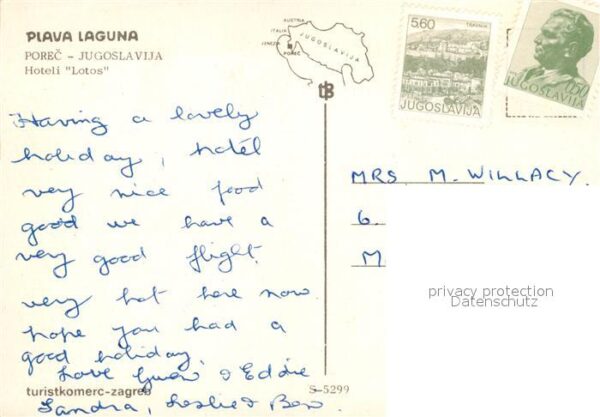 PLAVA LAGUNA
POREČ – JUGOSLAVIJA
Hoteli "Lotos"
AUSTRIA
ITALIA
VENEZIA
JUGOSLAVIJA
POREČ
5,60
TRAVNIK
JUGOSLAVIJA
0,50
JUGOSLAVIJA
Having a lovely
holiday, hotel
very nice food
good we have a
very good flight.
very hot here now
hope you had a
good holiday,
Love Gwen & Eddie
Sandra, Leslie & Bev.
MRS M. WILLACY.
6.
M
privacy protection
Datenschutz
turistkomerc-zagreb
S-5299